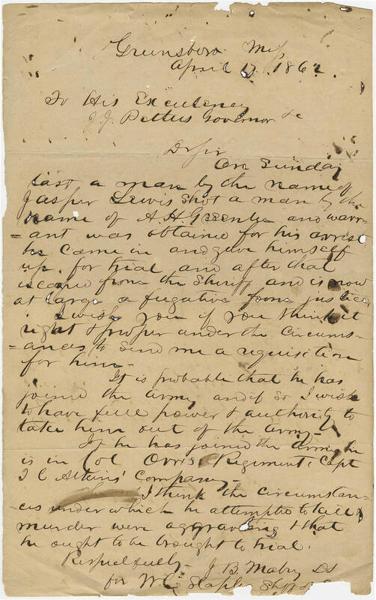 Greensboro Mi
April 17, 1862
To His Excellency
J. J. Pettus Governor &c
Dr Sir
On Sunday
last a man by the name of
Jasper Lewis shot a man by the
name of A. H. and warr
=ant was obtained for his arrest
he came in and gave himself
up for trial and after that
escaped from the Sheriff and is now
at large a fugitive from justice
I wish you if you think it
right & proper under the circums-
=ances to send me a requisition
for him—
It is probable that he has
joined the army and if so I wish
to have full power & authority to
take him out of the army
If he has joined the Army he
is in Col Regiment Capt
Company—
I think the circumstan-
ces under which he attempted to kill
murder were aggravating & that
he ought to be brought to trial.
Respectfully J. B. Mabry DS
for W. Shff